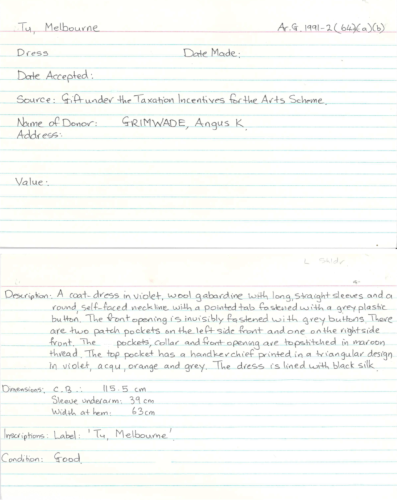 Tu, Melbourne Ar.G. 1991-2(64)(a)(b)
Dress Date Made:
Date Accepted:
Source: Gift under the Taxation Incentives for the Arts Scheme.
Name of Donor: GRIMWADE, Angus K.
Address:
Value:
Description: A coat-dress in violet, wool gabardine with long, straight sleeves and a
round, self-faced neckline with a pointed tab fastened with a grey plastic
button. The front opening is invisibly fastened with grey buttons. There
are two patch pockets on the left side front and one on the right side
front. The pockets, collar and front opening are topstitched in maroon
thread. The top pocket has a handkerchief printed in a triangular design
in violet, acqu, orange and grey. The dress is lined with black silk.
Dimensions: C.B.: 115.5 cm
Sleeve underarm: 39 cm
Width at hem: 63 cm
Inscriptions: Label: 'Tu, Melbourne'.
Condition: Good.